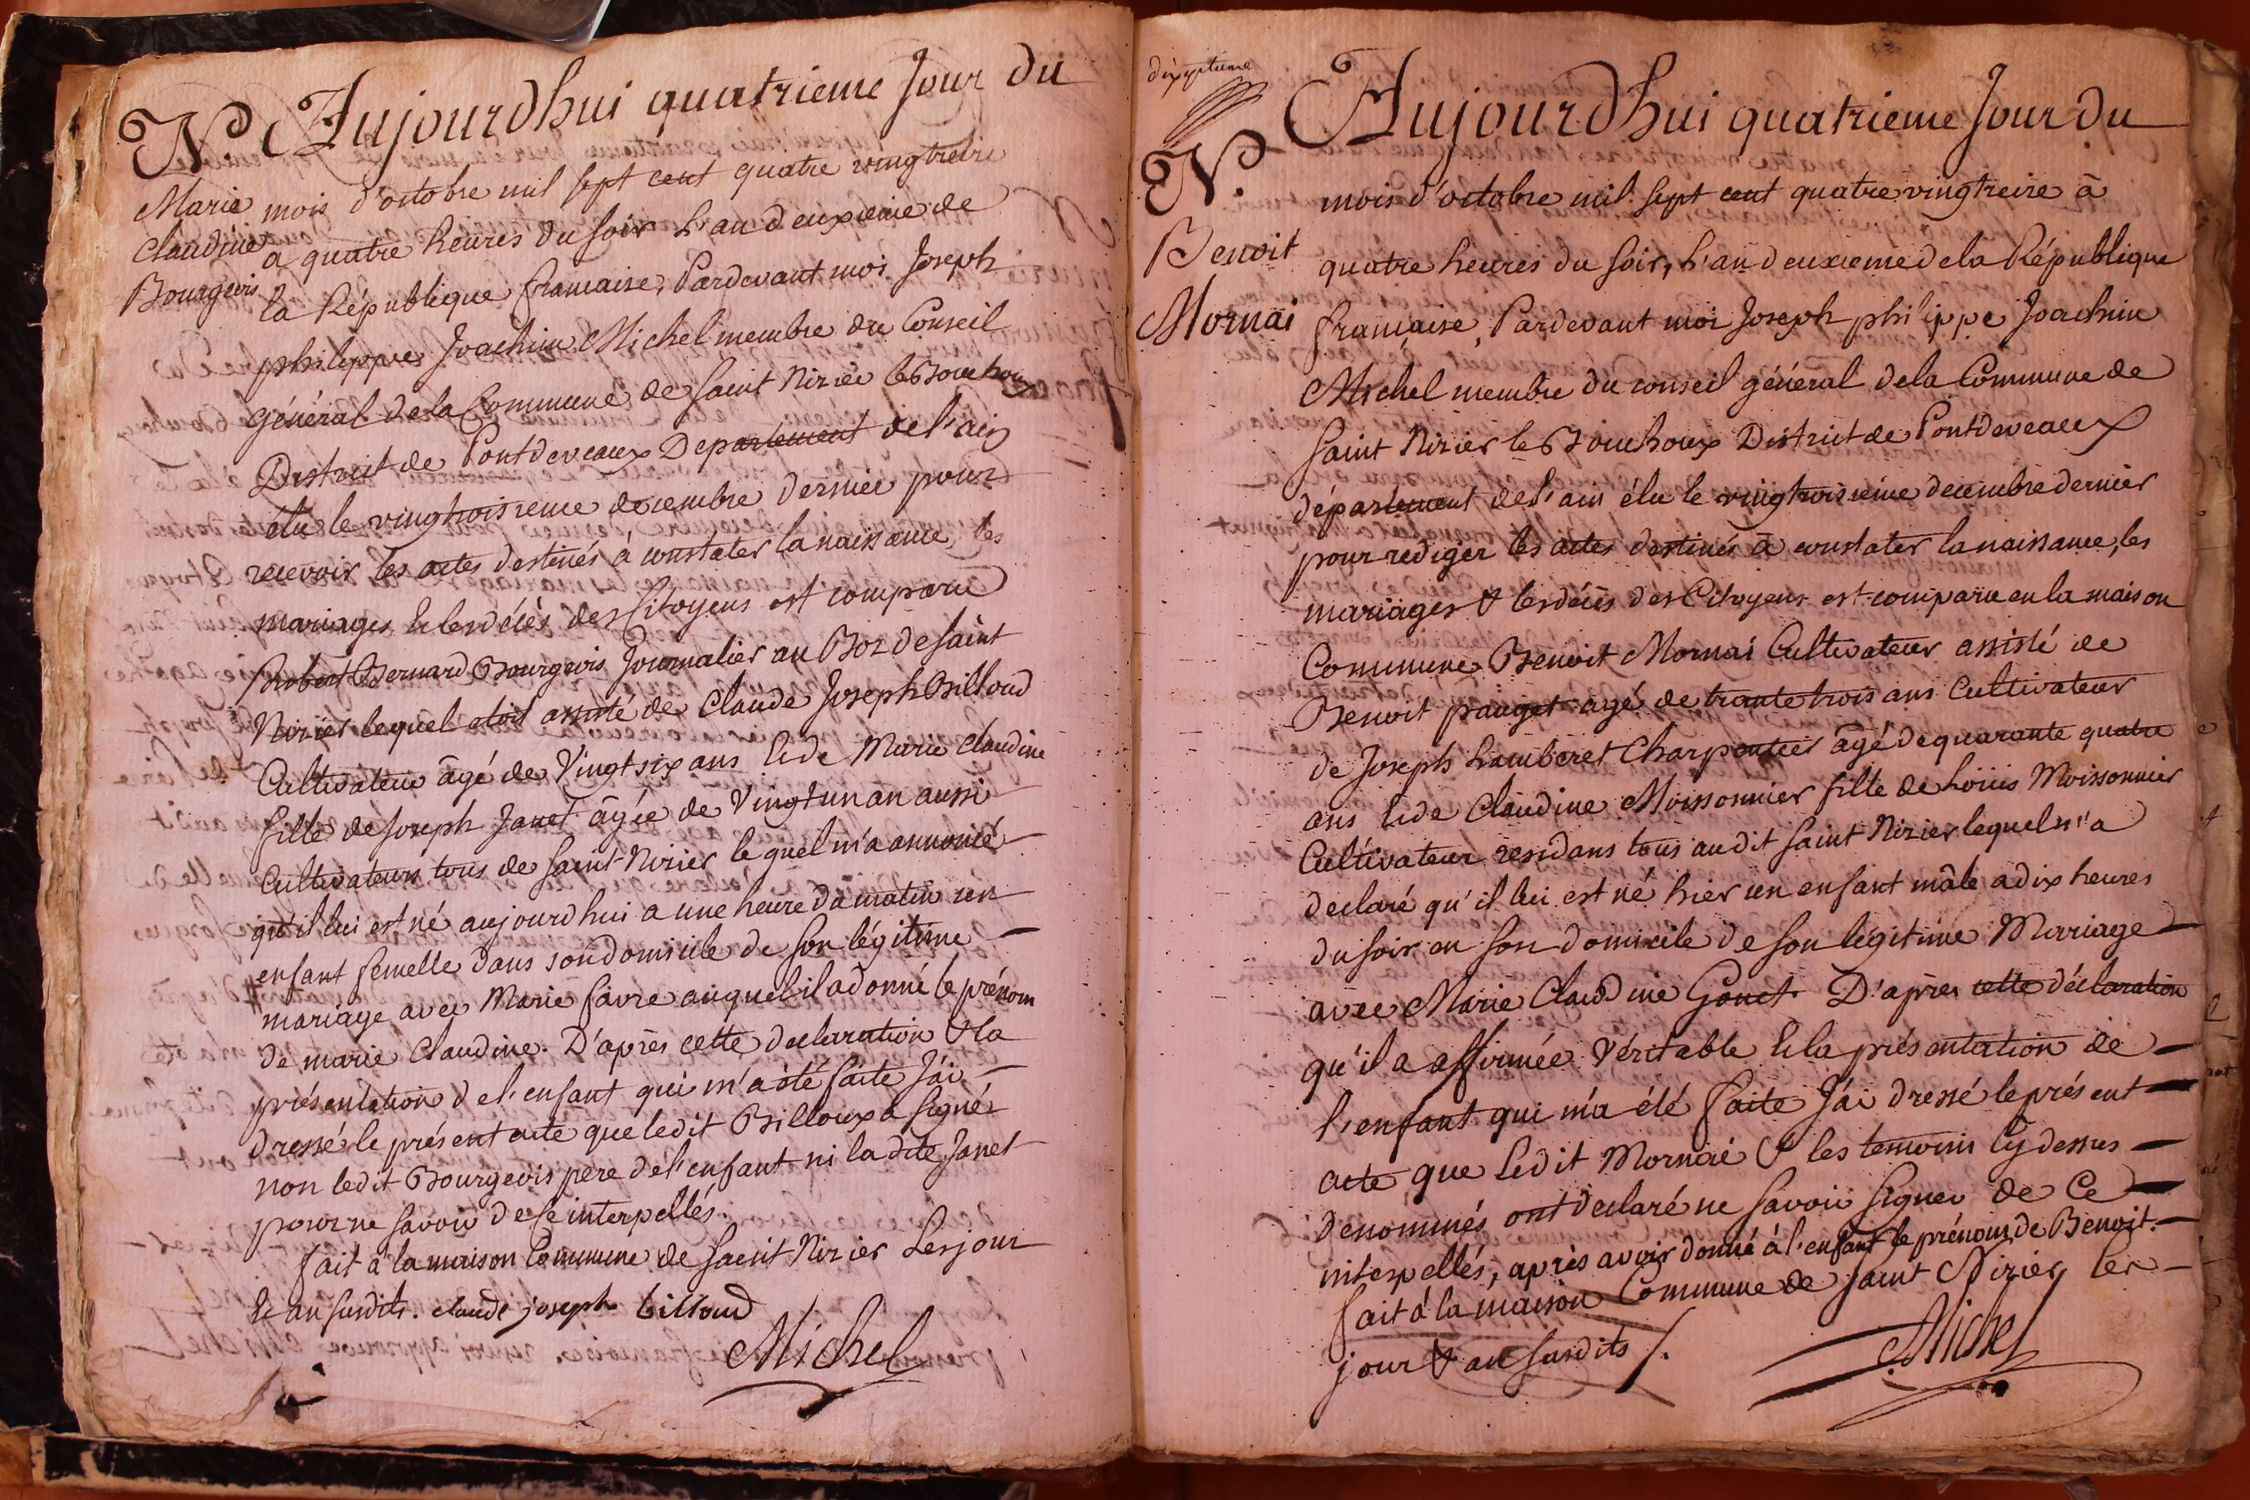 N. Aujourdhui quatrieme Jour du
Marie mois d'octobre mil sept cent quatre vingtreize
Claudine a quatre heures du soir L'an deuxieme de
Bourgeois la République francaise, Pardevant moi Joseph
philippe Joachim Michel membre du Conseil
général de la Commune de saint Nizier le Bouchoux
District de Pontdeveaux Departement de l'ain
élu le vingtroisieme decembre dernier pour
recevoir les actes destinés à constater la naissance, les
mariages & les décès des Citoyens est comparu
Robert Bernard Bourgeois Journalier au Boz de saint
Nizier lequel etoit assisté de Claude Joseph Billoud
Cultivateur âgé de Vingt six ans & de Marie Claudine
fille de Joseph Janet âgée de Vingtun an aussi
Cultivateurs tous de saint Nizier lequel m'a annoncé
qu'il lui est né aujourdhui a une heure du matin un
enfant femelle dans son domicile de son légitime
mariage avec Marie favre auquel il a donné le prénom
de marie Claudine. D'après cette declaration & la
présentation de l'enfant qui m'a été faite J'ai
dressé le présent acte que ledit Billoux a signé
non ledit Bourgeois pere de l'enfant ni la dite Janet
pour ne savoir de ce interpellés.
fait à la maison Commune de saint Nizier Les jour
& an susdits. claude joseph billoud
Michel
dixseptieme
N. Aujourdhui quatrieme Jour du
mois d'octobre mil sept cent quatre vingtreize à
Benoit quatre heures du soir, L'an deuxieme de la République
Mornai française, Pardevant moi Joseph philippe Joachim
Michel membre du conseil général de la Commune de
saint Nizier le Bouchoux District de Pontdeveaux
département de l'ain élu le vingtroisieme decembre dernier
pour rediger les actes destinés à constater la naissance, les
mariages & les décès des Citoyens est comparu en la maison
Commune Benoit Mornai Cultivateur assisté de
Benoit pauget agé de trente trois ans Cultivateur
de Joseph Lamberet Charpentier âgé de quarante quatre
ans & de Claudine Moissonnier fille de Loüis Moissonnier
Cultivateur residans tous audit saint Nizier lequel m'a
declaré qu'il lui est né hier un enfant mâle a dix heures
du soir en son domicile de son légitime Mariage
avec Marie Claudine Gonet. D'après cette déclaration
qu'il a affirmée Véritable & la présentation de
l'enfant qui m'a été faite J'ai dressé le présent
acte que Ledit Mornai & les temoins Cy dessus
denommés ont declaré ne savoir signer de Ce
interpellés, après avoir donné à l'enfant le prénom de Benoit.
fait à la maison Commune de saint Nizier les
jour & an susdits /.
Michel